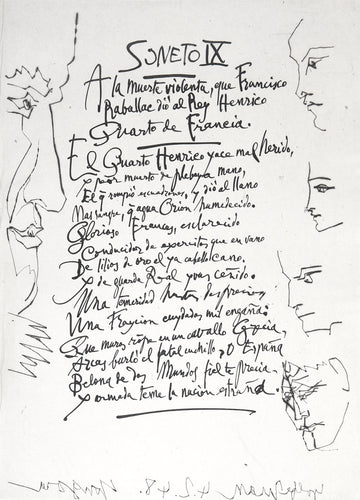 SONETO IX
A la muerte violenta, que Francisco
Raballac dió al Rey Henrico
Quarto de Francia.
El Quarto Henrico yace mal herido,
y peor muerto de plebeya mano,
El q̃ rompió escuadrones, y dió al llano
Mas sangre, q̃ agua Orion humedecido.
Glorioso Frances, esclarecido
Conducidor de exercitos, que en vano
De lilios de oro el ya cabello cano,
y de guarda Real yva ceñido.
Una temeridad hastas desprecia,
Una Traycion cuydados mil engaña,
Que muros rompe en un caballo Grecia,
Arcas burló el fatal cuchillo, ò España
Belona de dos Mundos fiel te precia,
y armada teme la nacion estraña.